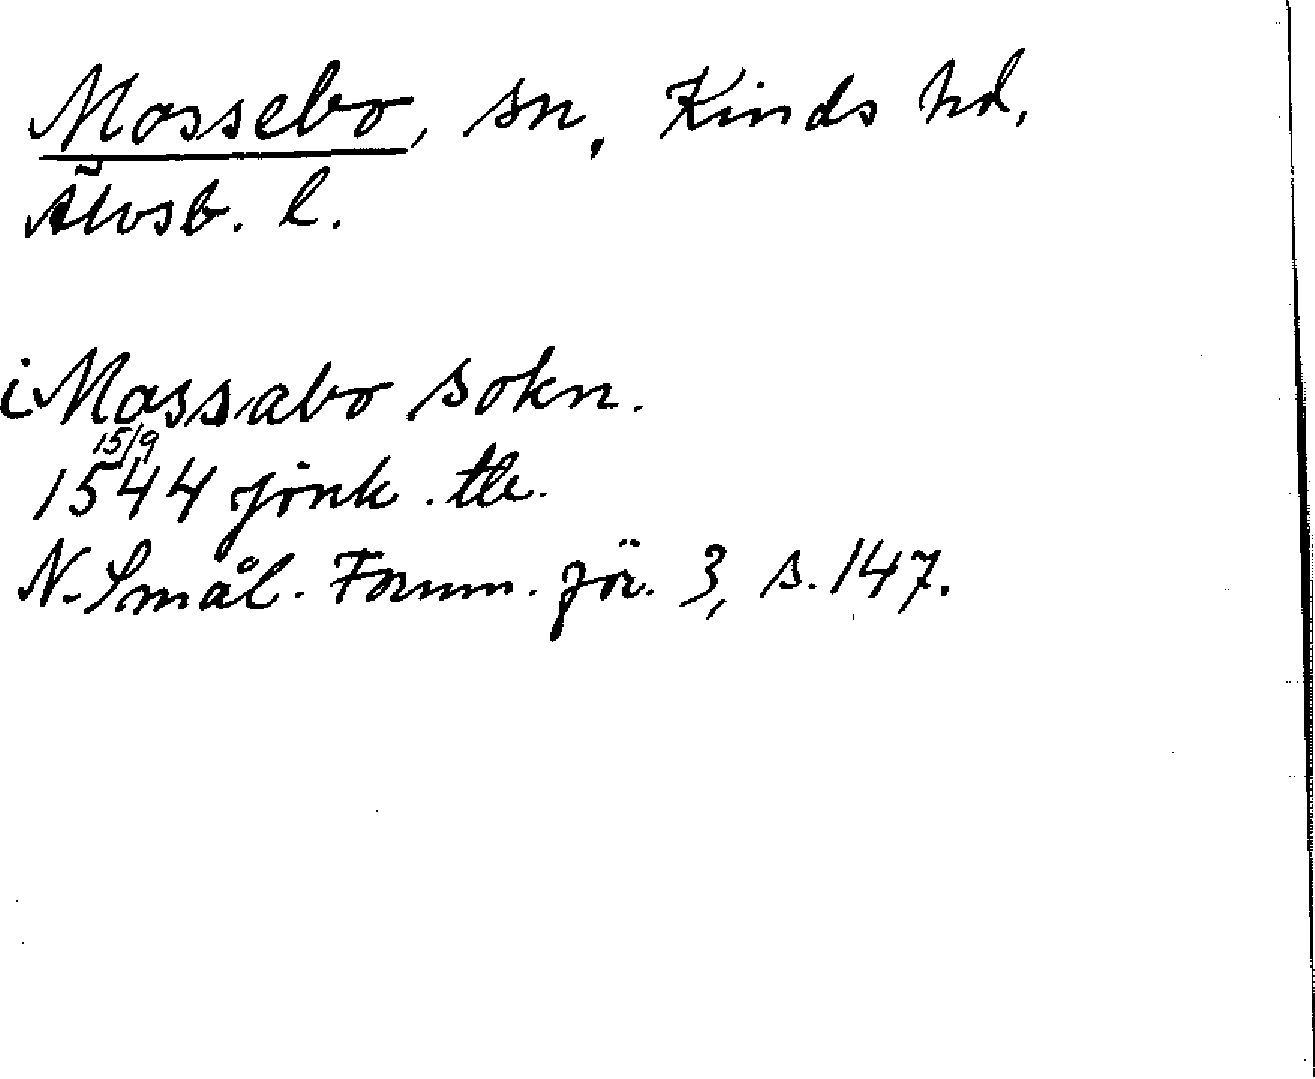 Mossebo, sn, Kinds hd,
Älvsb. l.
i Mossabo sokn.
15/9
1544 Jönk. tb.
N. Smål. Fornm. för. 3, s. 147.